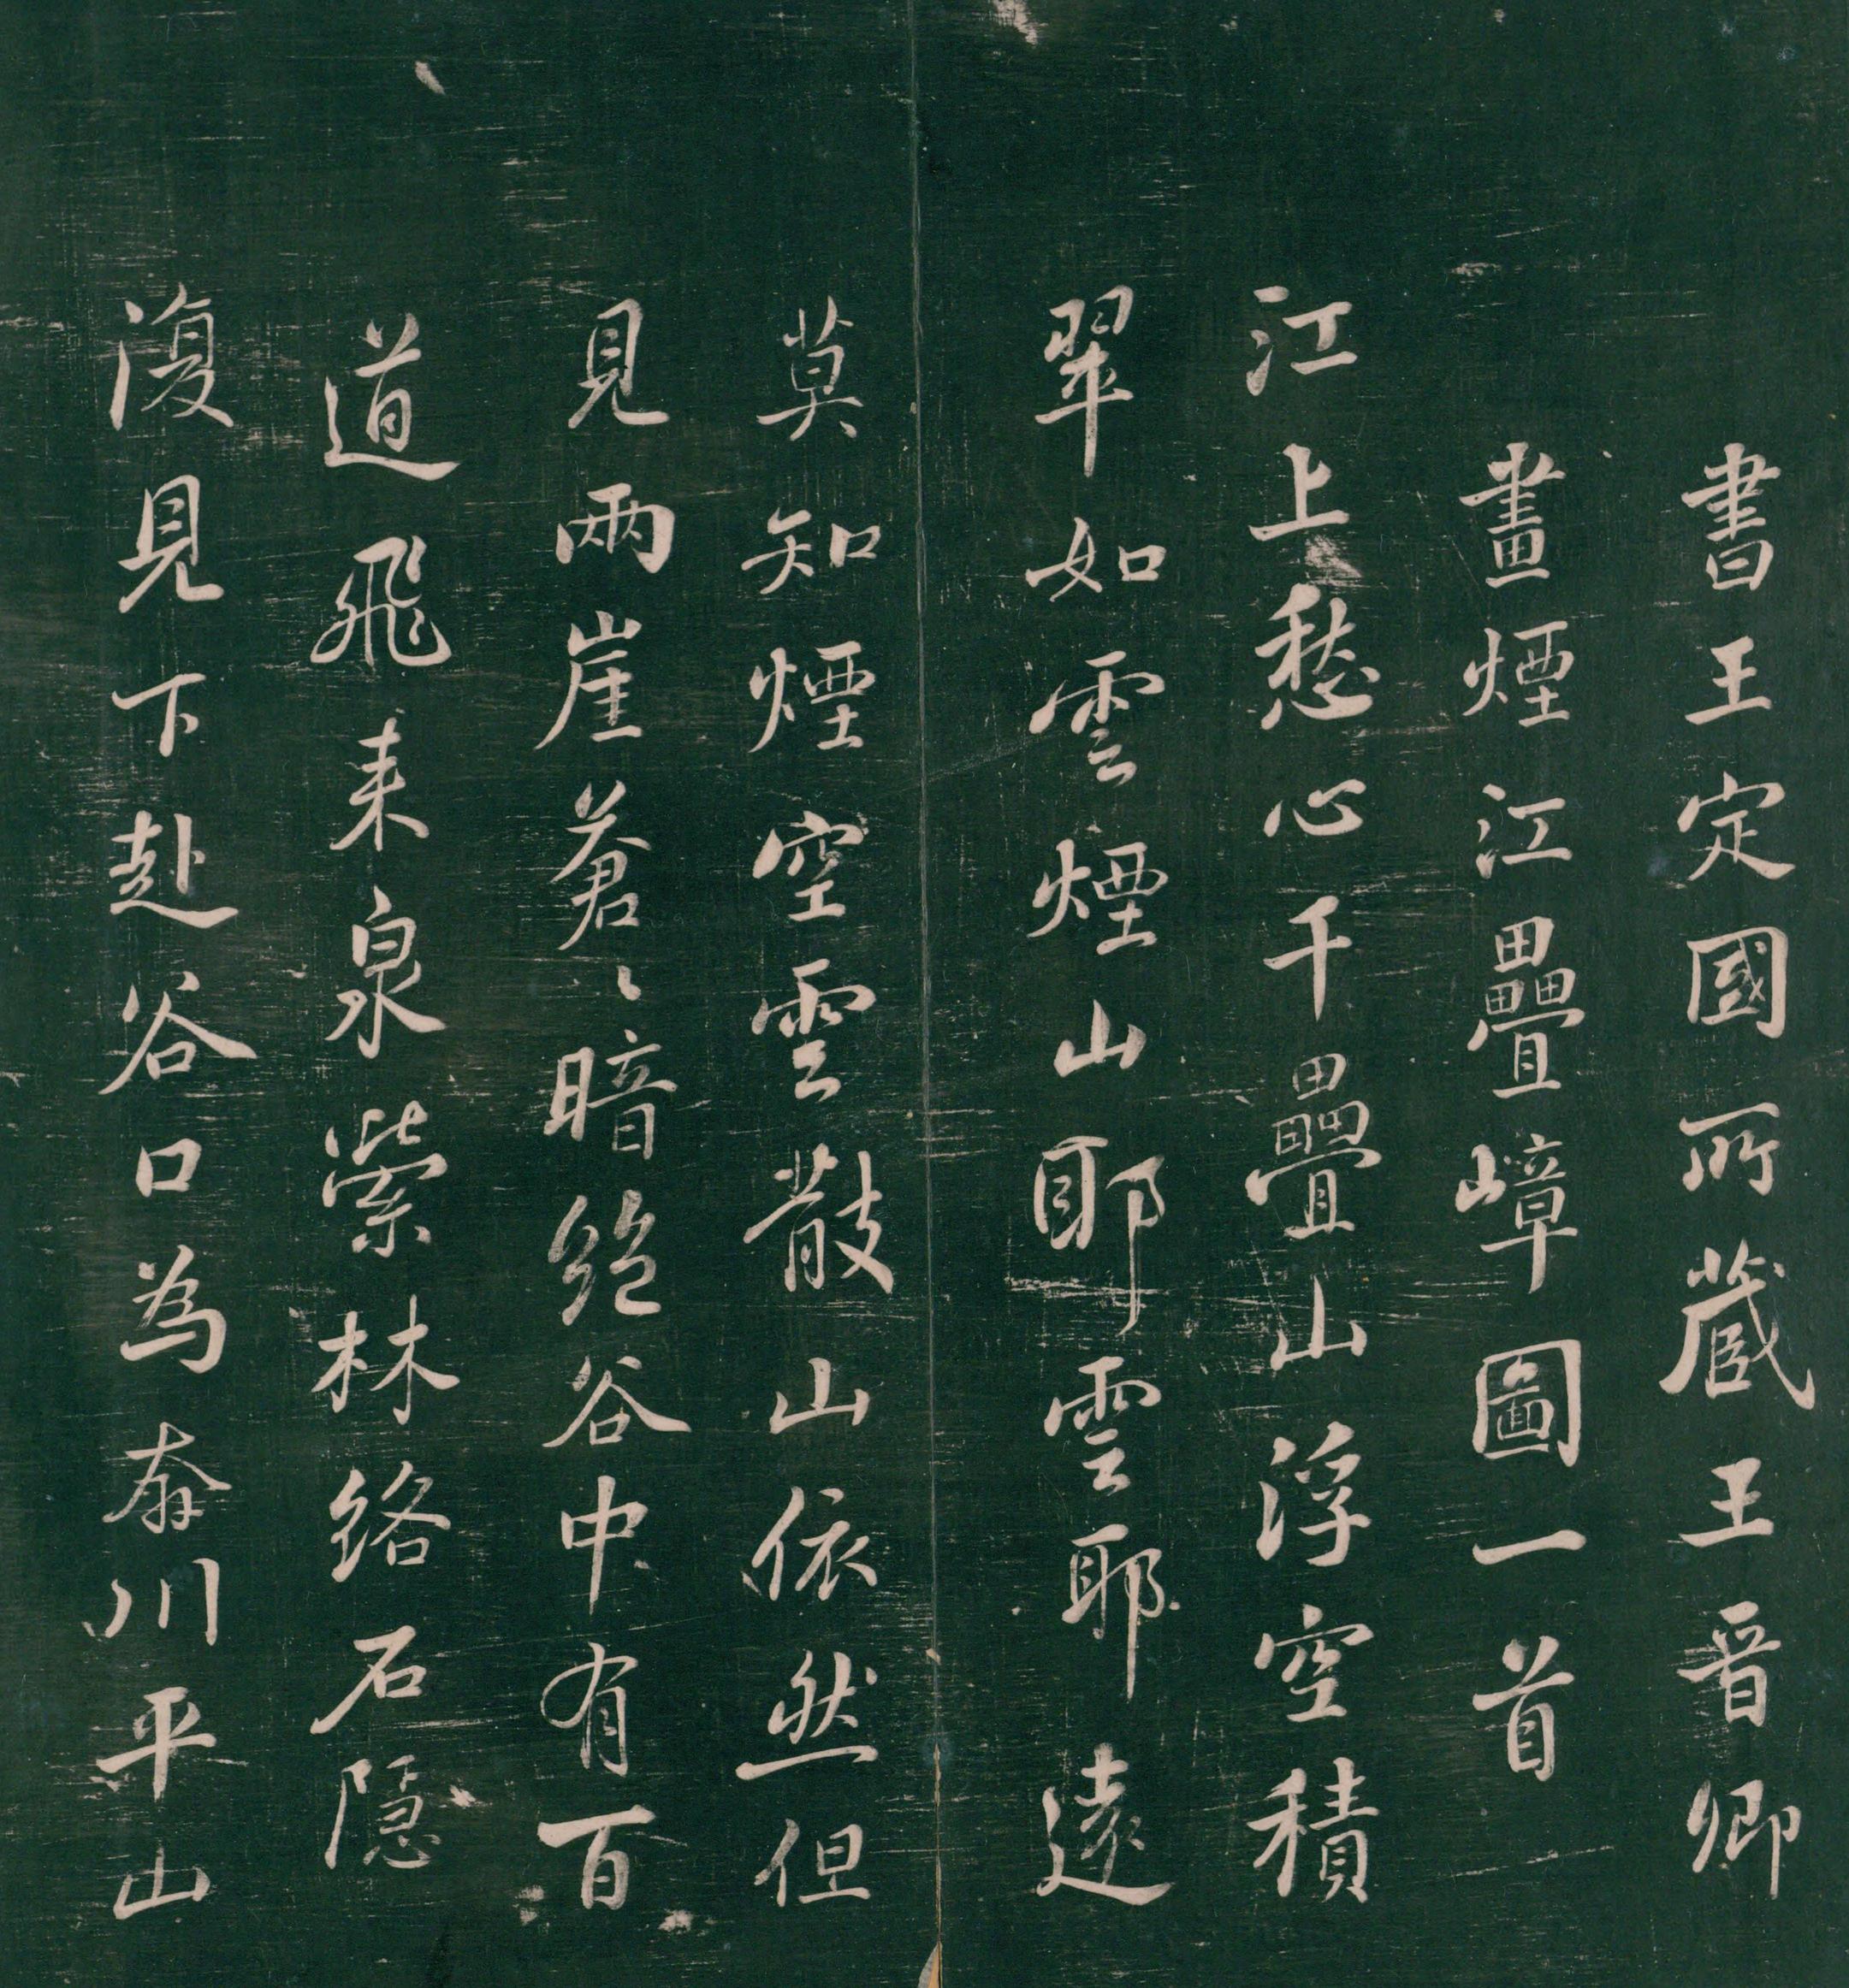 書王定國所藏王晉卿
畫煙江疊嶂圖一首
江上愁心千疊山浮空積
翠如雲煙山耶雲耶遠
莫知煙空雲散山依然但
見兩崖蒼〻暗絕谷中有百
道飛来泉縈林絡石隱
復見下赴谷口為奔川平山